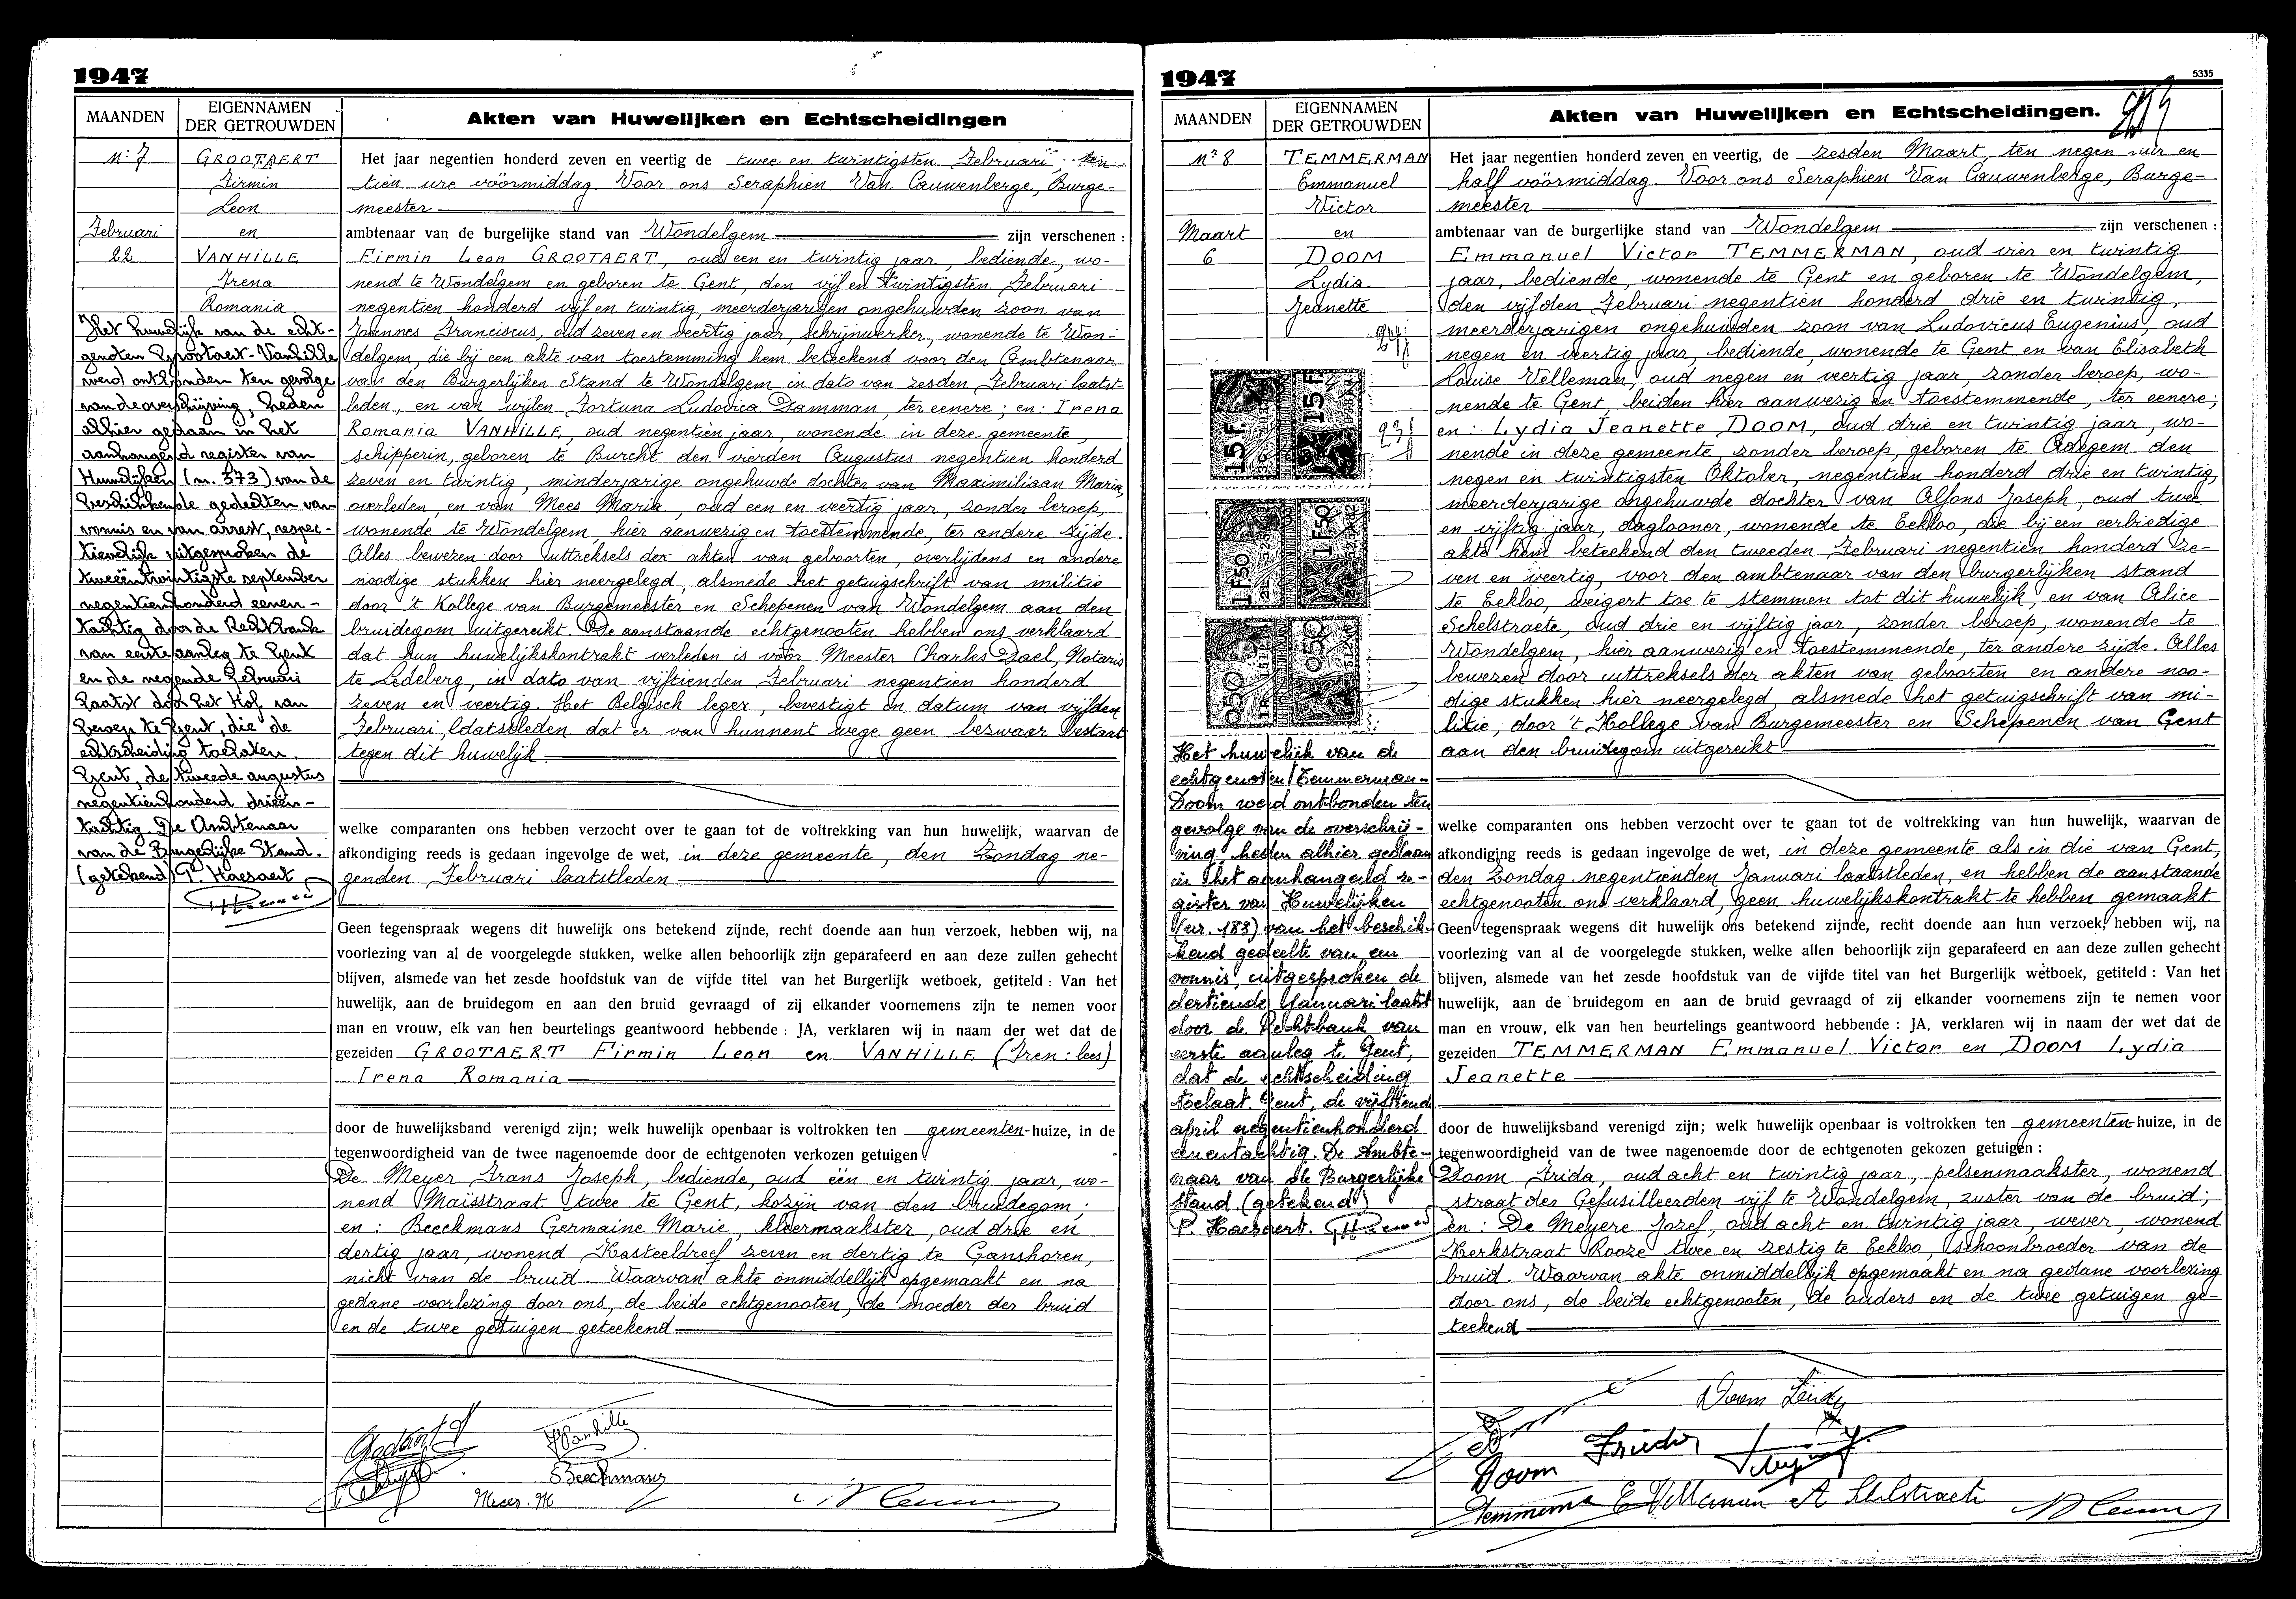 1947
MAANDEN
EIGENNAMEN
DER GETROUWDEN
Akten van Huwelijken en Echtscheidingen
N° 7
GROOTAERT
Firmin
Leon
Februari
en
22
VANHILLE
Irena
Romania
Het huwelijk van de echt-
genoten Grootaert-Vanhille
werd ontbonden ten gevolge
van de overschrijving, heden
alhier gedaan in het
aanhangend register van
Huwelijken (nr. 373) van de
beschikkende gedeelten van
vonnis en van arrest, respec-
tievelijk uitgesproken de
tweeëntwintigste september
negentienhonderd eenen-
tachtig door de Rechtbank
van eerste aanleg te Gent
en de negende februari
laatst door het Hof van
beroep te Gent, die de
echtscheiding toelaten.
Gent, de tweede augustus
negentienhonderd drieën-
tachtig. De Ambtenaar
van de Burgerlijke Stand.
(getekend) P. Haesaert
Het jaar negentien honderd zeven en veertig de twee en twintigsten Februari, ten
tien ure vóórmiddag. Voor ons Seraphien Van Cauwenberge, Burge-
meester
ambtenaar van de burgelijke stand van Wondelgem zijn verschenen :
Firmin Leon GROOTAERT, oud een en twintig jaar, bediende, wo-
nend te Wondelgem en geboren te Gent, den vijf en twintigsten Februari
negentien honderd vijf en twintig, meerderjarigen ongehuwden zoon van
Joannes Franciscus, oud zeven en veertig jaar, schrijnwerker, wonende te Won-
delgem, die bij een akte van toestemming hem beteekend voor den Ambtenaar
van den Burgerlijken Stand te Wondelgem in dato van zesden Februari laatst-
leden, en van wijlen Fortuna Ludovica Damman, ter eenere; en: Irena
Romania VANHILLE, oud negentien jaar, wonende in deze gemeente,
schipperin, geboren te Burcht den vierden Augustus negentien honderd
zeven en twintig, minderjarige ongehuwde dochter van Maximiliaan Maria,
overleden, en van Mees Maria, oud een en veertig jaar, zonder beroep,
wonende te Wondelgem, hier aanwezig en toestemmende, ter andere zijde.
Alles bewezen door uittreksels der akten van geboorten, overlijdens en andere
noodige stukken hier neergelegd, alsmede het getuigschrift van militie
door 't Kollege van Burgemeester en Schepenen van Wondelgem aan den
bruidegom uitgereikt. De aanstaande echtgenooten hebben ons verklaard
dat hun huwelijkskontrakt verleden is vóór Meester Charles Dael, Notaris
te Ledeberg, in dato van vijftienden Februari negentien honderd
zeven en veertig. Het Belgisch leger, bevestigt in datum van vijfden
Februari, laatstleden dat er van hunnent wege geen bezwaar bestaat
tegen dit huwelijk
welke comparanten ons hebben verzocht over te gaan tot de voltrekking van hun huwelijk, waarvan de
afkondiging reeds is gedaan ingevolge de wet, in deze gemeente, den Zondag ne-
genden Februari laatstleden
Geen tegenspraak wegens dit huwelijk ons betekend zijnde, recht doende aan hun verzoek, hebben wij, na
voorlezing van al de voorgelegde stukken, welke allen behoorlijk zijn geparafeerd en aan deze zullen gehecht
blijven, alsmede van het zesde hoofdstuk van de vijfde titel van het Burgerlijk wetboek, getiteld : Van het
huwelijk, aan de bruidegom en aan de bruid gevraagd of zij elkander voornemens zijn te nemen voor
man en vrouw, elk van hen beurtelings geantwoord hebbende : JA, verklaren wij in naam der wet dat de
gezeiden GROOTAERT Firmin Leon en VANHILLE (Iren: lees)
Irena Romania
door de huwelijksband verenigd zijn; welk huwelijk openbaar is voltrokken ten gemeenten-huize, in de
tegenwoordigheid van de twee nagenoemde door de echtgenoten verkozen getuigen
De Meyer Frans Joseph, bediende, oud één en twintig jaar, wo-
nend Maïsstraat twee te Gent, kozijn van den bruidegom;
en: Beeckmans Germaine Marie, kleermaakster, oud drie en
dertig jaar, wonend Kasteeldreef zeven en dertig te Ganshoren,
nicht van de bruid. Waarvan akte onmiddellijk opgemaakt en na
gedane voorlezing door ons, de beide echtgenooten, de moeder der bruid
en de twee getuigen geteekend
Grootaert
Vanhille
Beeckmans
Mees. M
1947
5335
MAANDEN
EIGENNAMEN
DER GETROUWDEN
Akten van Huwelijken en Echtscheidingen.
N° 8
TEMMERMAN
Emmanuel
Victor
Maart
en
6
DOOM
Lydia
Jeanette
15F
15F
1F50
1F50
050
050
Het huwelijk van de
echtgenoten Temmerman-
Doom werd ontbonden ten
gevolge van de overschrij-
ving, heden alhier gedaan
in het aanhangend re-
gister van Huwelijken
(nr. 183) van het beschik-
kend gedeelte van een
vonnis, uitgesproken de
dertiende januari laatst
door de Rechtbank van
eerste aanleg te Gent,
dat de echtscheiding
toelaat. Gent, de vijftiende
april negentienhonderd
eenentachtig. De Ambte-
naar van de Burgerlijke
stand (getekend)
P. Haesaert.
Het jaar negentien honderd zeven en veertig, de zesden Maart, ten negen uur en
half vóórmiddag. Voor ons Seraphien Van Cauwenberge, Burge-
meester
ambtenaar van de burgerlijke stand van Wondelgem zijn verschenen :
Emmanuel Victor TEMMERMAN, oud vier en twintig
jaar, bediende, wonende te Gent en geboren te Wondelgem,
den vijfden Februari negentien honderd drie en twintig,
meerderjarigen ongehuwden zoon van Ludovicus Eugenius, oud
negen en veertig jaar, bediende, wonende te Gent en van Elisabeth
Louise Velleman, oud negen en veertig jaar, zonder beroep, wo-
nende te Gent, beiden hier aanwezig en toestemmende, ter eenere;
en: Lydia Jeanette DOOM, oud drie en twintig jaar, wo-
nende in deze gemeente, zonder beroep, geboren te Adegem den
negen en twintigsten Oktober, negentien honderd drie en twintig,
meerderjarige ongehuwde dochter van Alfons Joseph, oud twee
en vijftig jaar, daglooner, wonende te Eekloo, die bij een eerbiedige
akte hem beteekend den tweeden Februari negentien honderd ze-
ven en veertig, voor den ambtenaar van den burgerlijken stand
te Eekloo, weigert toe te stemmen tot dit huwelijk, en van Alice
Schelstraete, oud drie en vijftig jaar, zonder beroep, wonende te
Wondelgem, hier aanwezig en toestemmende, ter andere zijde. Alles
bewezen door uittreksels der akten van geboorten en andere noo-
dige stukken hier neergelegd, alsmede het getuigschrift van mi-
litie, door 't Kollege van Burgemeester en Schepenen van Gent
aan den bruidegom uitgereikt
welke comparanten ons hebben verzocht over te gaan tot de voltrekking van hun huwelijk, waarvan de
afkondiging reeds is gedaan ingevolge de wet, in deze gemeente als in die van Gent,
den Zondag negentienden Januari laatstleden, en hebben de aanstaande
echtgenooten ons verklaard, geen huwelijkskontrakt te hebben gemaakt
Geen tegenspraak wegens dit huwelijk ons betekend zijnde, recht doende aan hun verzoek, hebben wij, na
voorlezing van al de voorgelegde stukken, welke allen behoorlijk zijn geparafeerd en aan deze zullen gehecht
blijven, alsmede van het zesde hoofdstuk van de vijfde titel van het Burgerlijk wetboek, getiteld : Van het
huwelijk, aan de bruidegom en aan de bruid gevraagd of zij elkander voornemens zijn te nemen voor
man en vrouw, elk van hen beurtelings geantwoord hebbende : JA, verklaren wij in naam der wet dat de
gezeiden TEMMERMAN Emmanuel Victor en DOOM Lydia
Jeanette
door de huwelijksband verenigd zijn; welk huwelijk openbaar is voltrokken ten gemeenten-huize, in de
tegenwoordigheid van de twee nagenoemde door de echtgenoten gekozen getuigen :
Doom Frida, oud acht en twintig jaar, pelsenmaakster, wonend
straat der Gefusilleerden vijf te Wondelgem, zuster van de bruid;
en: De Meyere Jozef, oud acht en twintig jaar, wever, wonend
Kerkstraat Rooze twee en zestig te Eekloo, schoonbroeder van de
bruid. Waarvan akte onmiddellijk opgemaakt en na gedane voorlezing
door ons, de beide echtgenooten, de ouders en de twee getuigen ge-
teekend
Doom
Doom Frieda
Temmerman E Velleman A Schelstraete